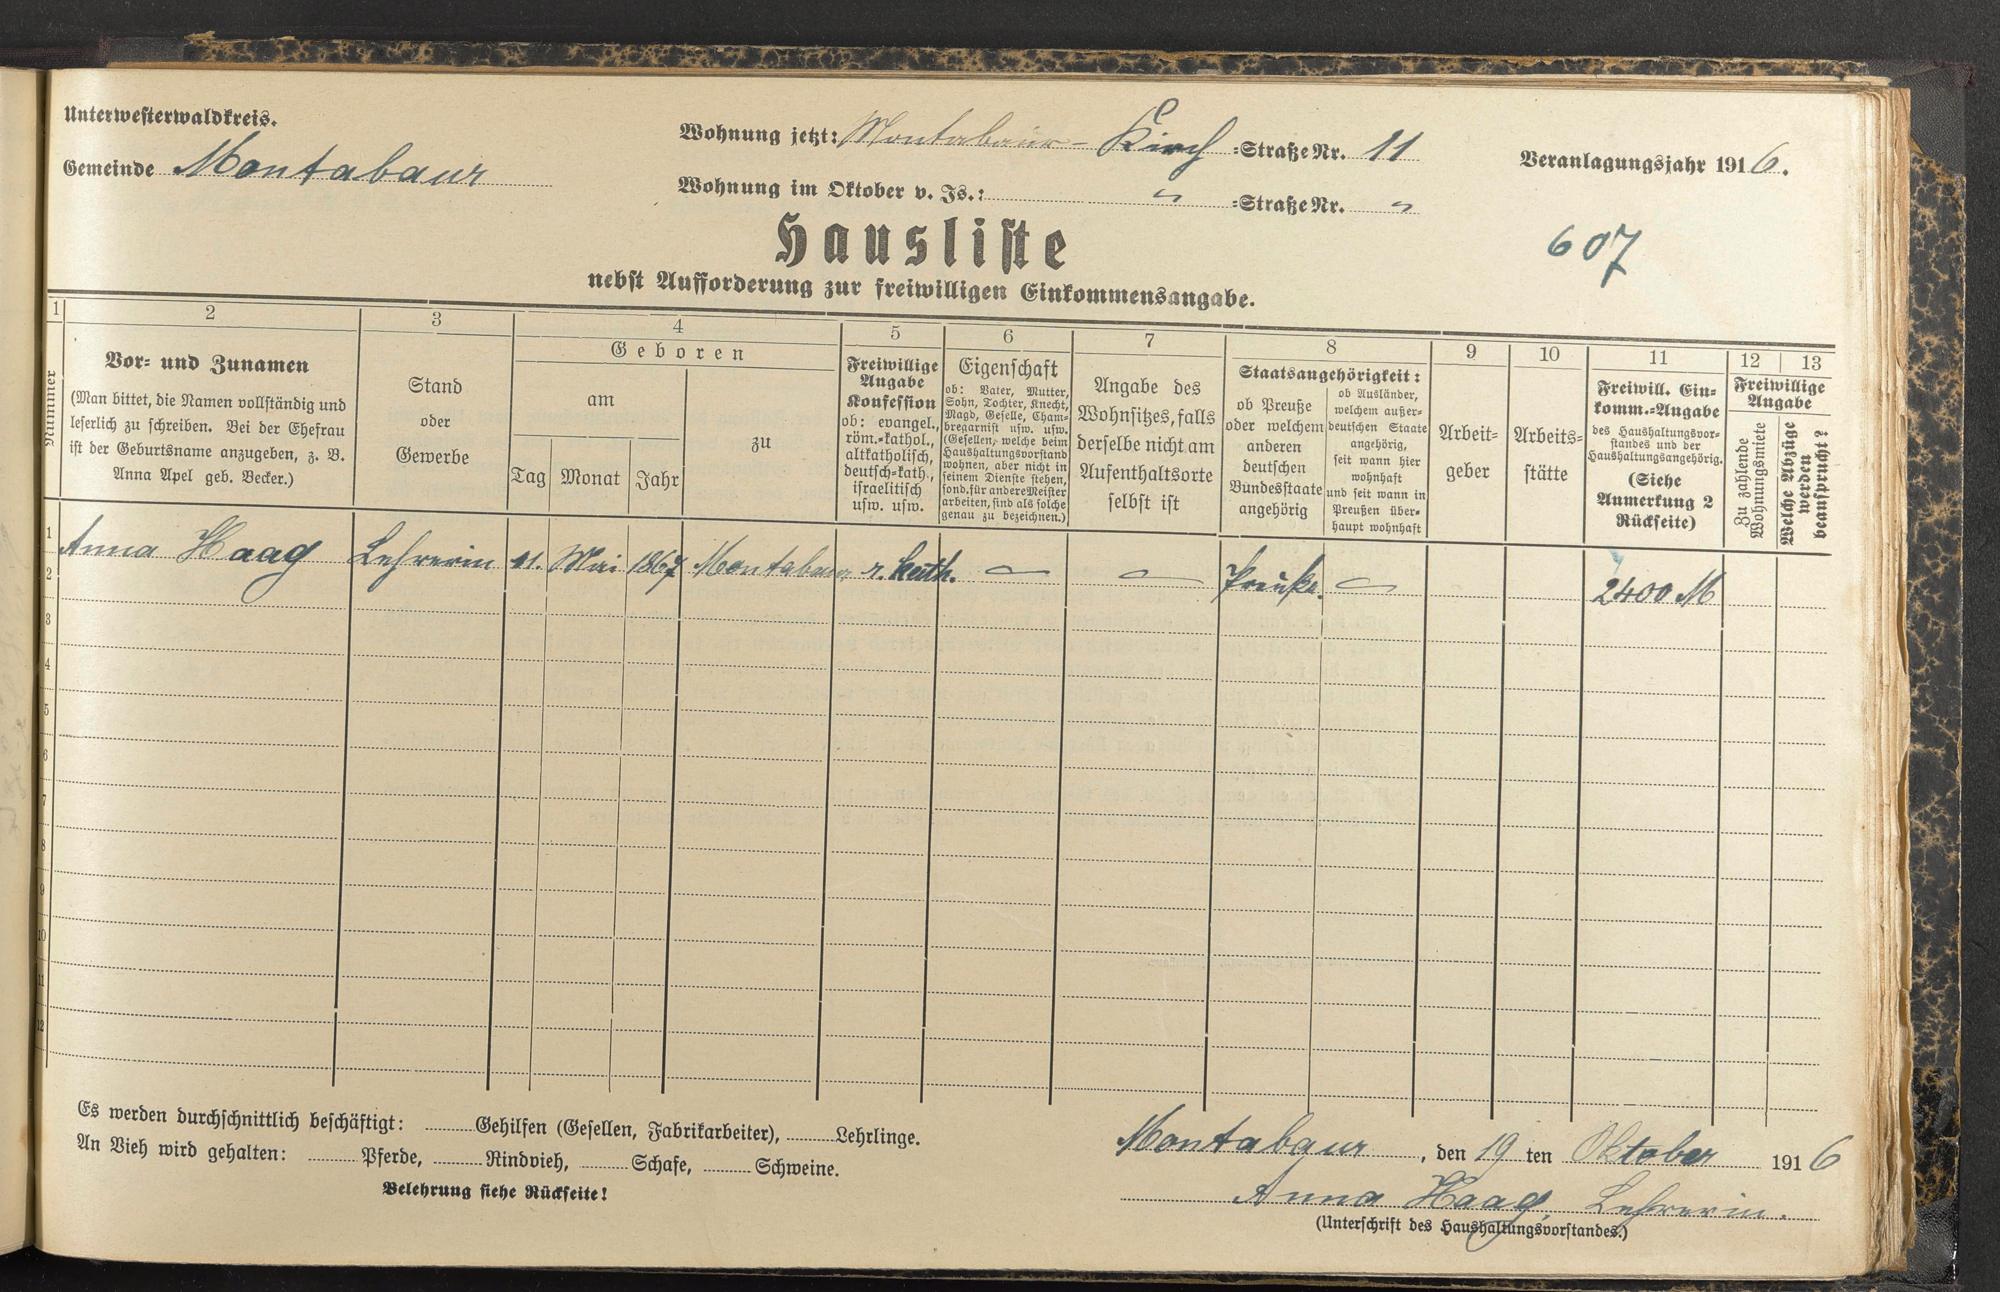 Unterwesterwaldkreis.
Gemeinde Montabaur
Wohnung jetzt: Montabaur - Kirch =Straße Nr. 11
Wohnung im Oktober v. Js.: " =Straße Nr. "
Veranlagungsjahr 1916.
607
Hausliste
nebst Aufforderung zur freiwilligen Einkommensangabe.
1
Nummer
2
Vor- und Zunamen
(Man bittet, die Namen vollständig und
leserlich zu schreiben. Bei der Ehefrau
ist der Geburtsname anzugeben, z. B.
Anna Apel geb. Becker.)
3
Stand
oder
Gewerbe
4
Geboren
am
Tag Monat Jahr
zu
5
Freiwillige
Angabe
Konfession
ob: evangel.,
röm.=kathol.,
altkatholisch,
deutsch=kath.,
israelitisch
usw. usw.
6
Eigenschaft
ob: Vater, Mutter,
Sohn, Tochter, Knecht,
Magd, Geselle, Cham=
bregarnist usw. usw.
(Gesellen, welche beim
Haushaltungsvorstand
wohnen, aber nicht in
seinem Dienste stehen,
sond. für andere Meister
arbeiten, sind als solche
genau zu bezeichnen.)
7
Angabe des
Wohnsitzes, falls
derselbe nicht am
Aufenthaltsorte
selbst ist
8
Staatsangehörigkeit:
ob Preuße
oder welchem
anderen
deutschen
Bundesstaate
angehörig
ob Ausländer,
welchem außer=
deutschen Staate
angehörig,
seit wann hier
wohnhaft
und seit wann in
Preußen über=
haupt wohnhaft
9
Arbeit=
geber
10
Arbeits=
stätte
11
Freiwill. Ein=
komm.=Angabe
des Haushaltungsvor=
standes und der
Haushaltungsangehörig.
(Siehe
Anmerkung 2
Rückseite)
12 13
Freiwillige
Angabe
Zu zahlende
Wohnungsmiete
Welche Abzüge
werden
beansprucht?
1
Anna Haag Lehrerin 11. Mai 1867 Montabaur r. kath. — — Preuße. — 2400 M
2
3
4
5
6
7
8
9
10
11
12
Es werden durchschnittlich beschäftigt: Gehilfen (Gesellen, Fabrikarbeiter), Lehrlinge.
An Vieh wird gehalten: Pferde, Rindvieh, Schafe, Schweine.
Belehrung siehe Rückseite!
Montabaur, den 19 ten Oktober 1916
Anna Haag, Lehrerin.
(Unterschrift des Haushaltungsvorstandes.)